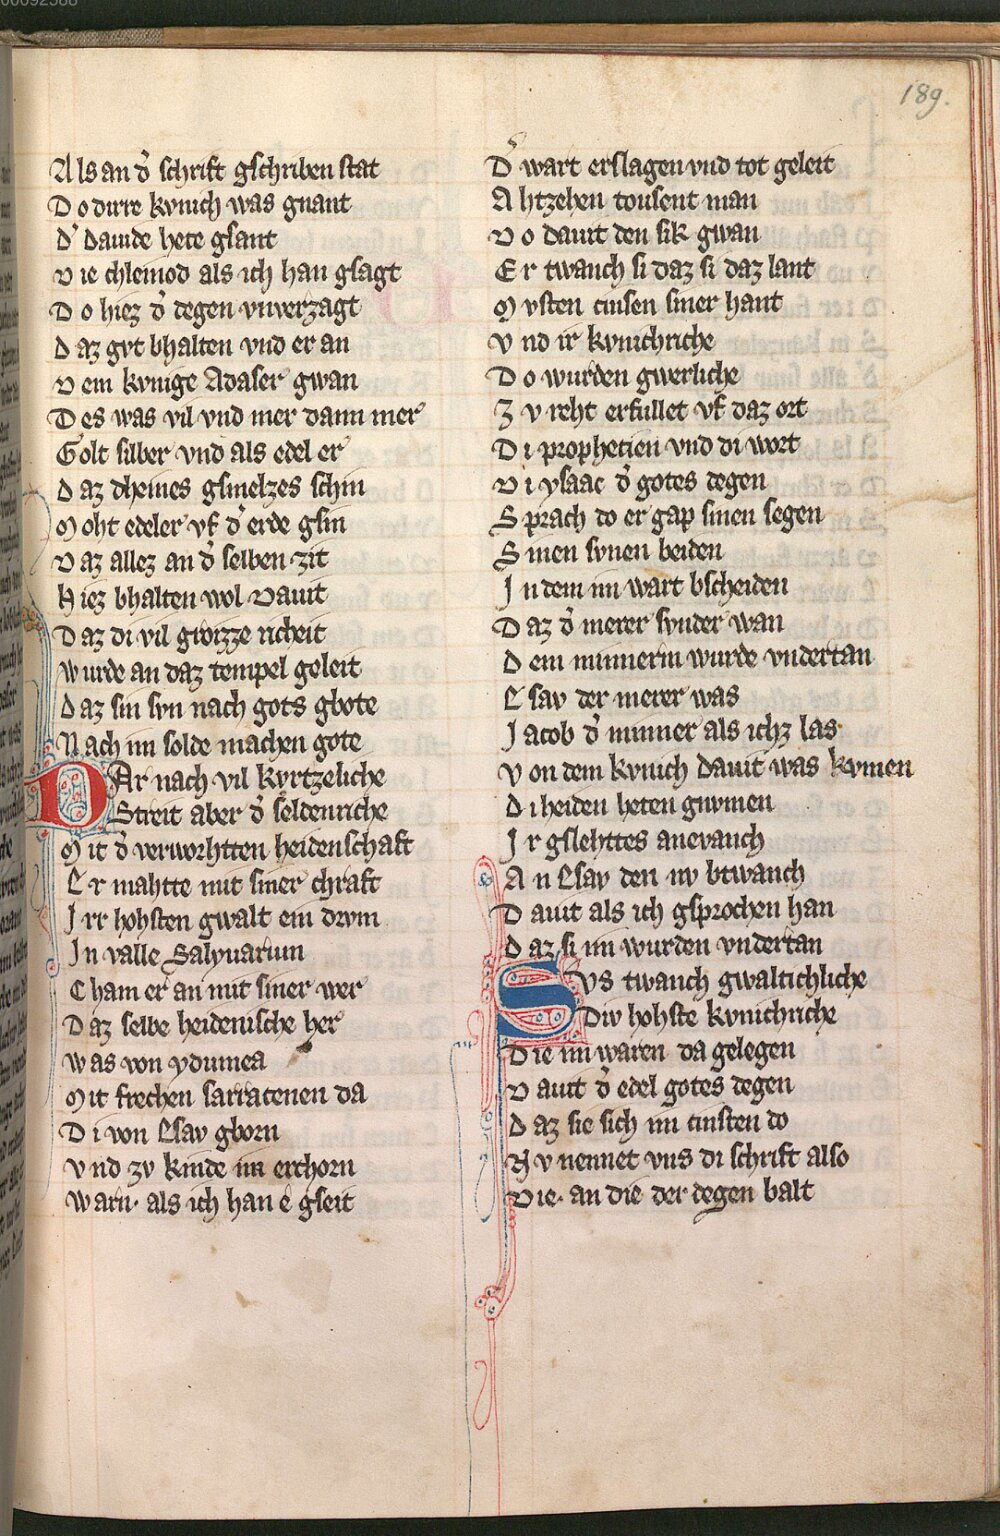 00092588
189.
Als an d̾ schrift gschriben stat
Do dirre kvnich was gnant
D̾ Dauide hete gsant
Die chleinod als ich han gsagt
Do hiez d̾ degen vnverzagt
Daz gvt bhalten vnd er an
Dem kvnige Adaser gwan
Des was vil vnd mer dann mer
Golt silber vnd als edel er
Daz dheines gsmelzes schin
Moht edeler vf d̾ erde gsin
Daz allez an d̾ selben zit
Hiez bhalten wol Dauit
Daz di vil gwizze richeit
Wurde an daz tempel geleit
Daz sin svn nach gots gbote
Nach im solde machen gote
DAr nach vil kvrtzeliche
Streit aber d̾ seldenriche
Mit d̾ verworhtten heidenschaft
Er mahtte mit siner chraft
Irr hohsten gwalt ein drvm
In valle Salynarum
Cham er an mit siner wer
Daz selbe heidenische her
Was von ydumea
Mit frechen sarracenen da
Di von Esav gborn
Vnd zv kinde im erchorn
Warn· als ich han e gseit
D̾ wart erslagen vnd tot geleit
Ahtzehen tousent man
Do dauit den sik gwan
Er twanch si daz si daz lant
Mvsten cinsen siner hant
Vnd ir kvnichriche
Do wurden gwerliche
Zv reht erfullet vf daz ort
Di prophecien vnd di wort
Di ysaac d̾ gotes degen
Sprach do er gap sinen segen
Sinen svnen beiden
In dem im wart bscheiden
Daz d̾ merer svnder wan
Dem minnerm wurde vndertan
Esav der merer was
Jacob d̾ minner als ichz las
Von dem kvnich dauit was kvmen
Di heiden heten gnvmen
Ir gslehttes anevanch
An Esav den nv btwanch
Dauit als ich gsprochen han
Daz si im wurden vndertan
SVs twanch gwaltichliche
Div hohste kvnichriche
Die im waren da gelegen
Dauit d̾ edel gotes degen
Daz sie sich im cinsten do
Nv nennet vns di schrift also
Die· an die der degen balt